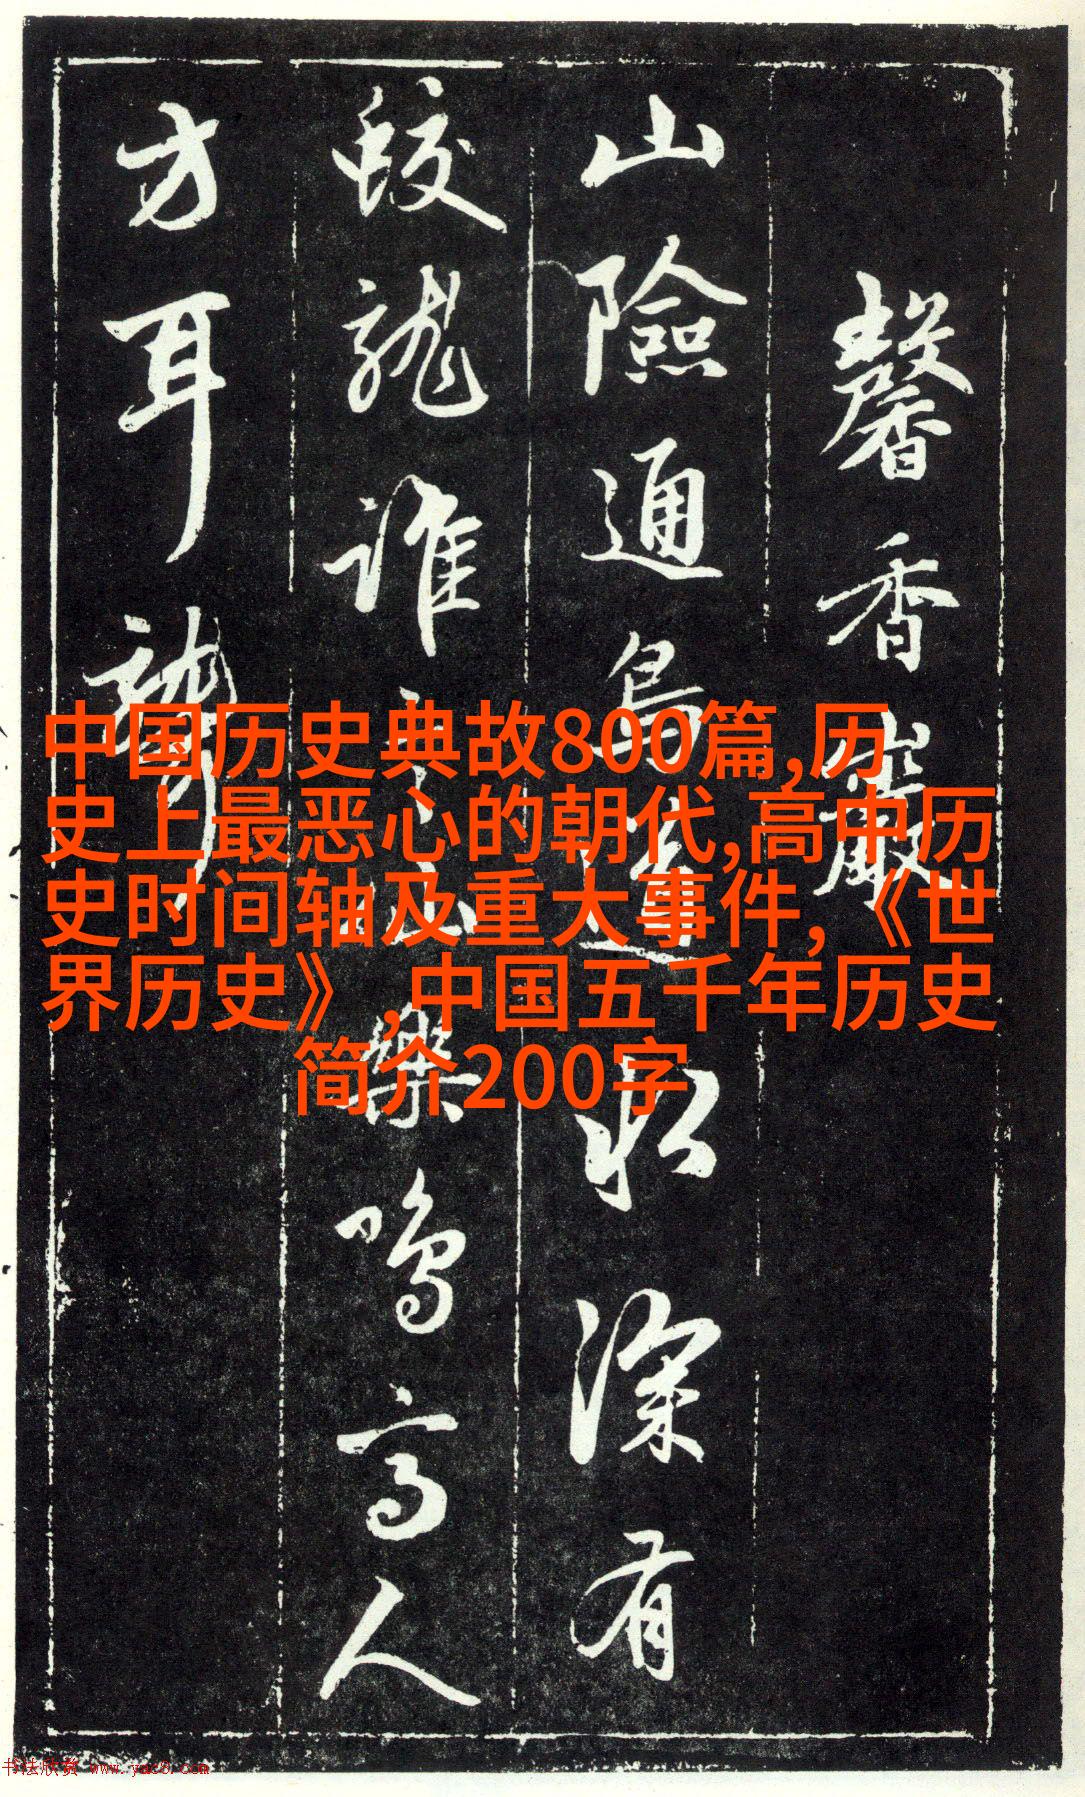 馨香巖
山險通鳥道水深有
蛟龍誰樂鳴高人
方耳聾
中国历史典故800篇,历
史上最恶心的朝代,高中历
史时间轴及重大事件,《世
界历史》,中国五千年历史
简介200字
书法欣赏 www.yac8.com